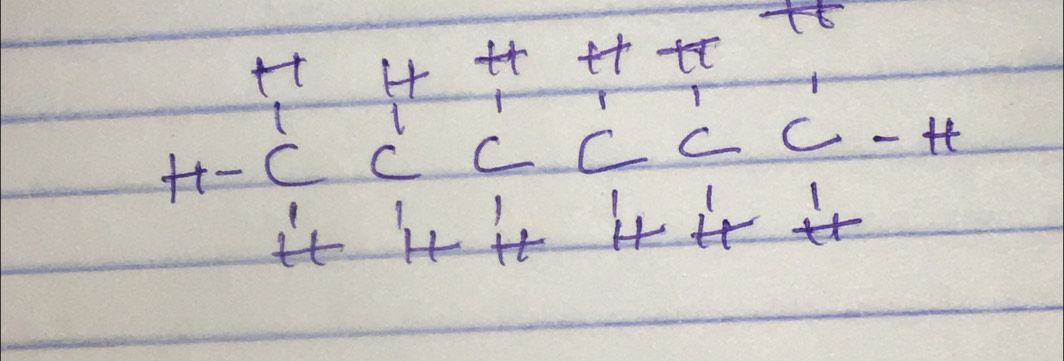 H H H H H H
H-C C C C C C-H
H H H H H H